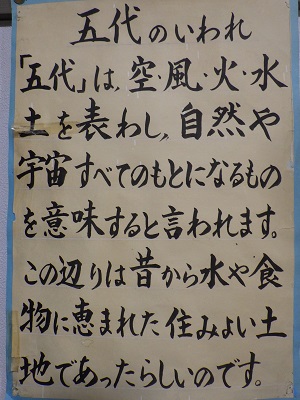 五代のいわれ
「五代」は、空・風・火・水
土を表わし、自然や
宇宙すべてのもとになるもの
を意味すると言われます。
この辺りは昔から水や食
物に恵まれた住みよい土
地であったらしいのです。